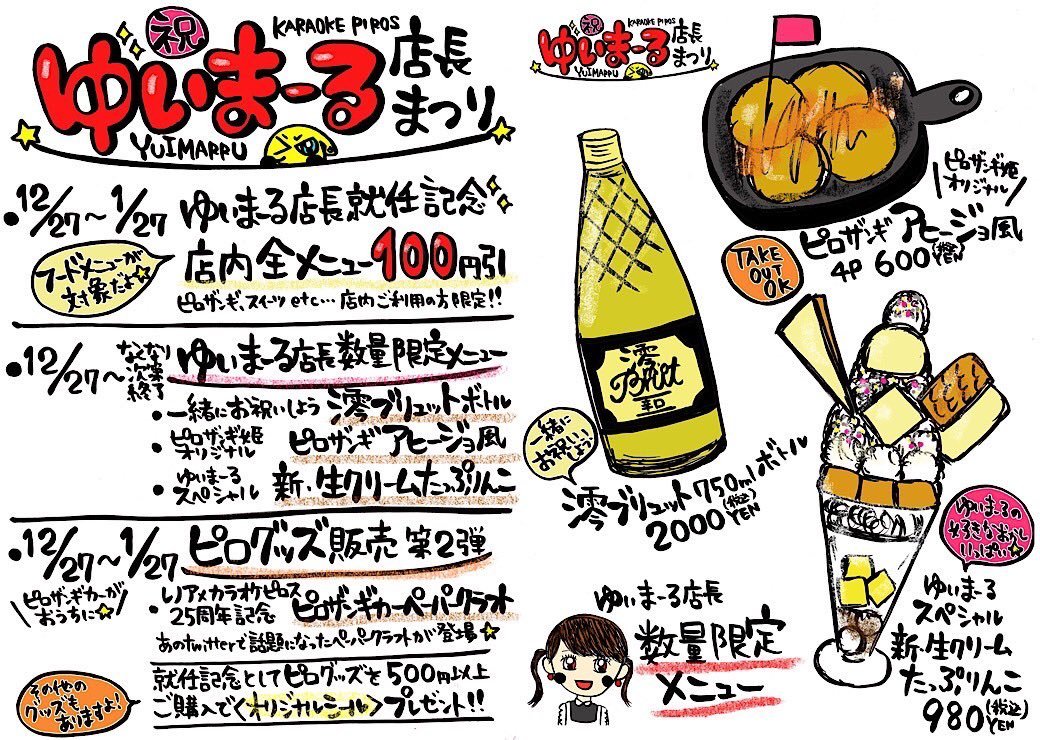 祝
KARAOKE PIROS
ゆいまーる
店長
まつり
YUIMARRU
•12/27〜1/27 ゆいまーる店長就任記念
フードメニューが
対象だよ
店内全メニュー100円引
ピロザンギ、スイーツetc…店内ご利用の方限定!!
•12/27〜
なくなり
次第
終了
ゆいまーる店長数量限定メニュー
•一緒にお祝いしよう 澪ブリュットボトル
•ピロザンギ姫
オリジナル
ピロザンギアヒージョ風
•ゆいまーる
スペシャル
新・生クリームたっぷりんこ
•12/27〜1/27 ピログッズ販売 第2弾
ピロザンギカーが
おうちに
•レノアメカラオケピロス
25周年記念
ピロザンギカーペーパークラフト
あのTwitterで話題になったペーパークラフトが登場
その他の
グッズも
ありますよ!
就任記念としてピログッズを500円以上
ご購入で〈オリジナルシール〉プレゼント!!
祝
KARAOKE PIROS
ゆいまーる
店長
まつり
YUIMARRU
ピロザンギ姫
オリジナル
ピロザンギアヒージョ風
4P 600(税込)YEN
TAKE
OUT
OK
澪
Brut
辛口
一緒に
お祝いし
しよう!
澪ブリュット750mlボトル
2000(税込)YEN
ゆいまーるの
好きなおかし
いっぱい
ゆいまーる
スペシャル
新・生クリーム
たっぷりんこ
980(税込)YEN
ゆいまーる店長
数量限定
メニュー